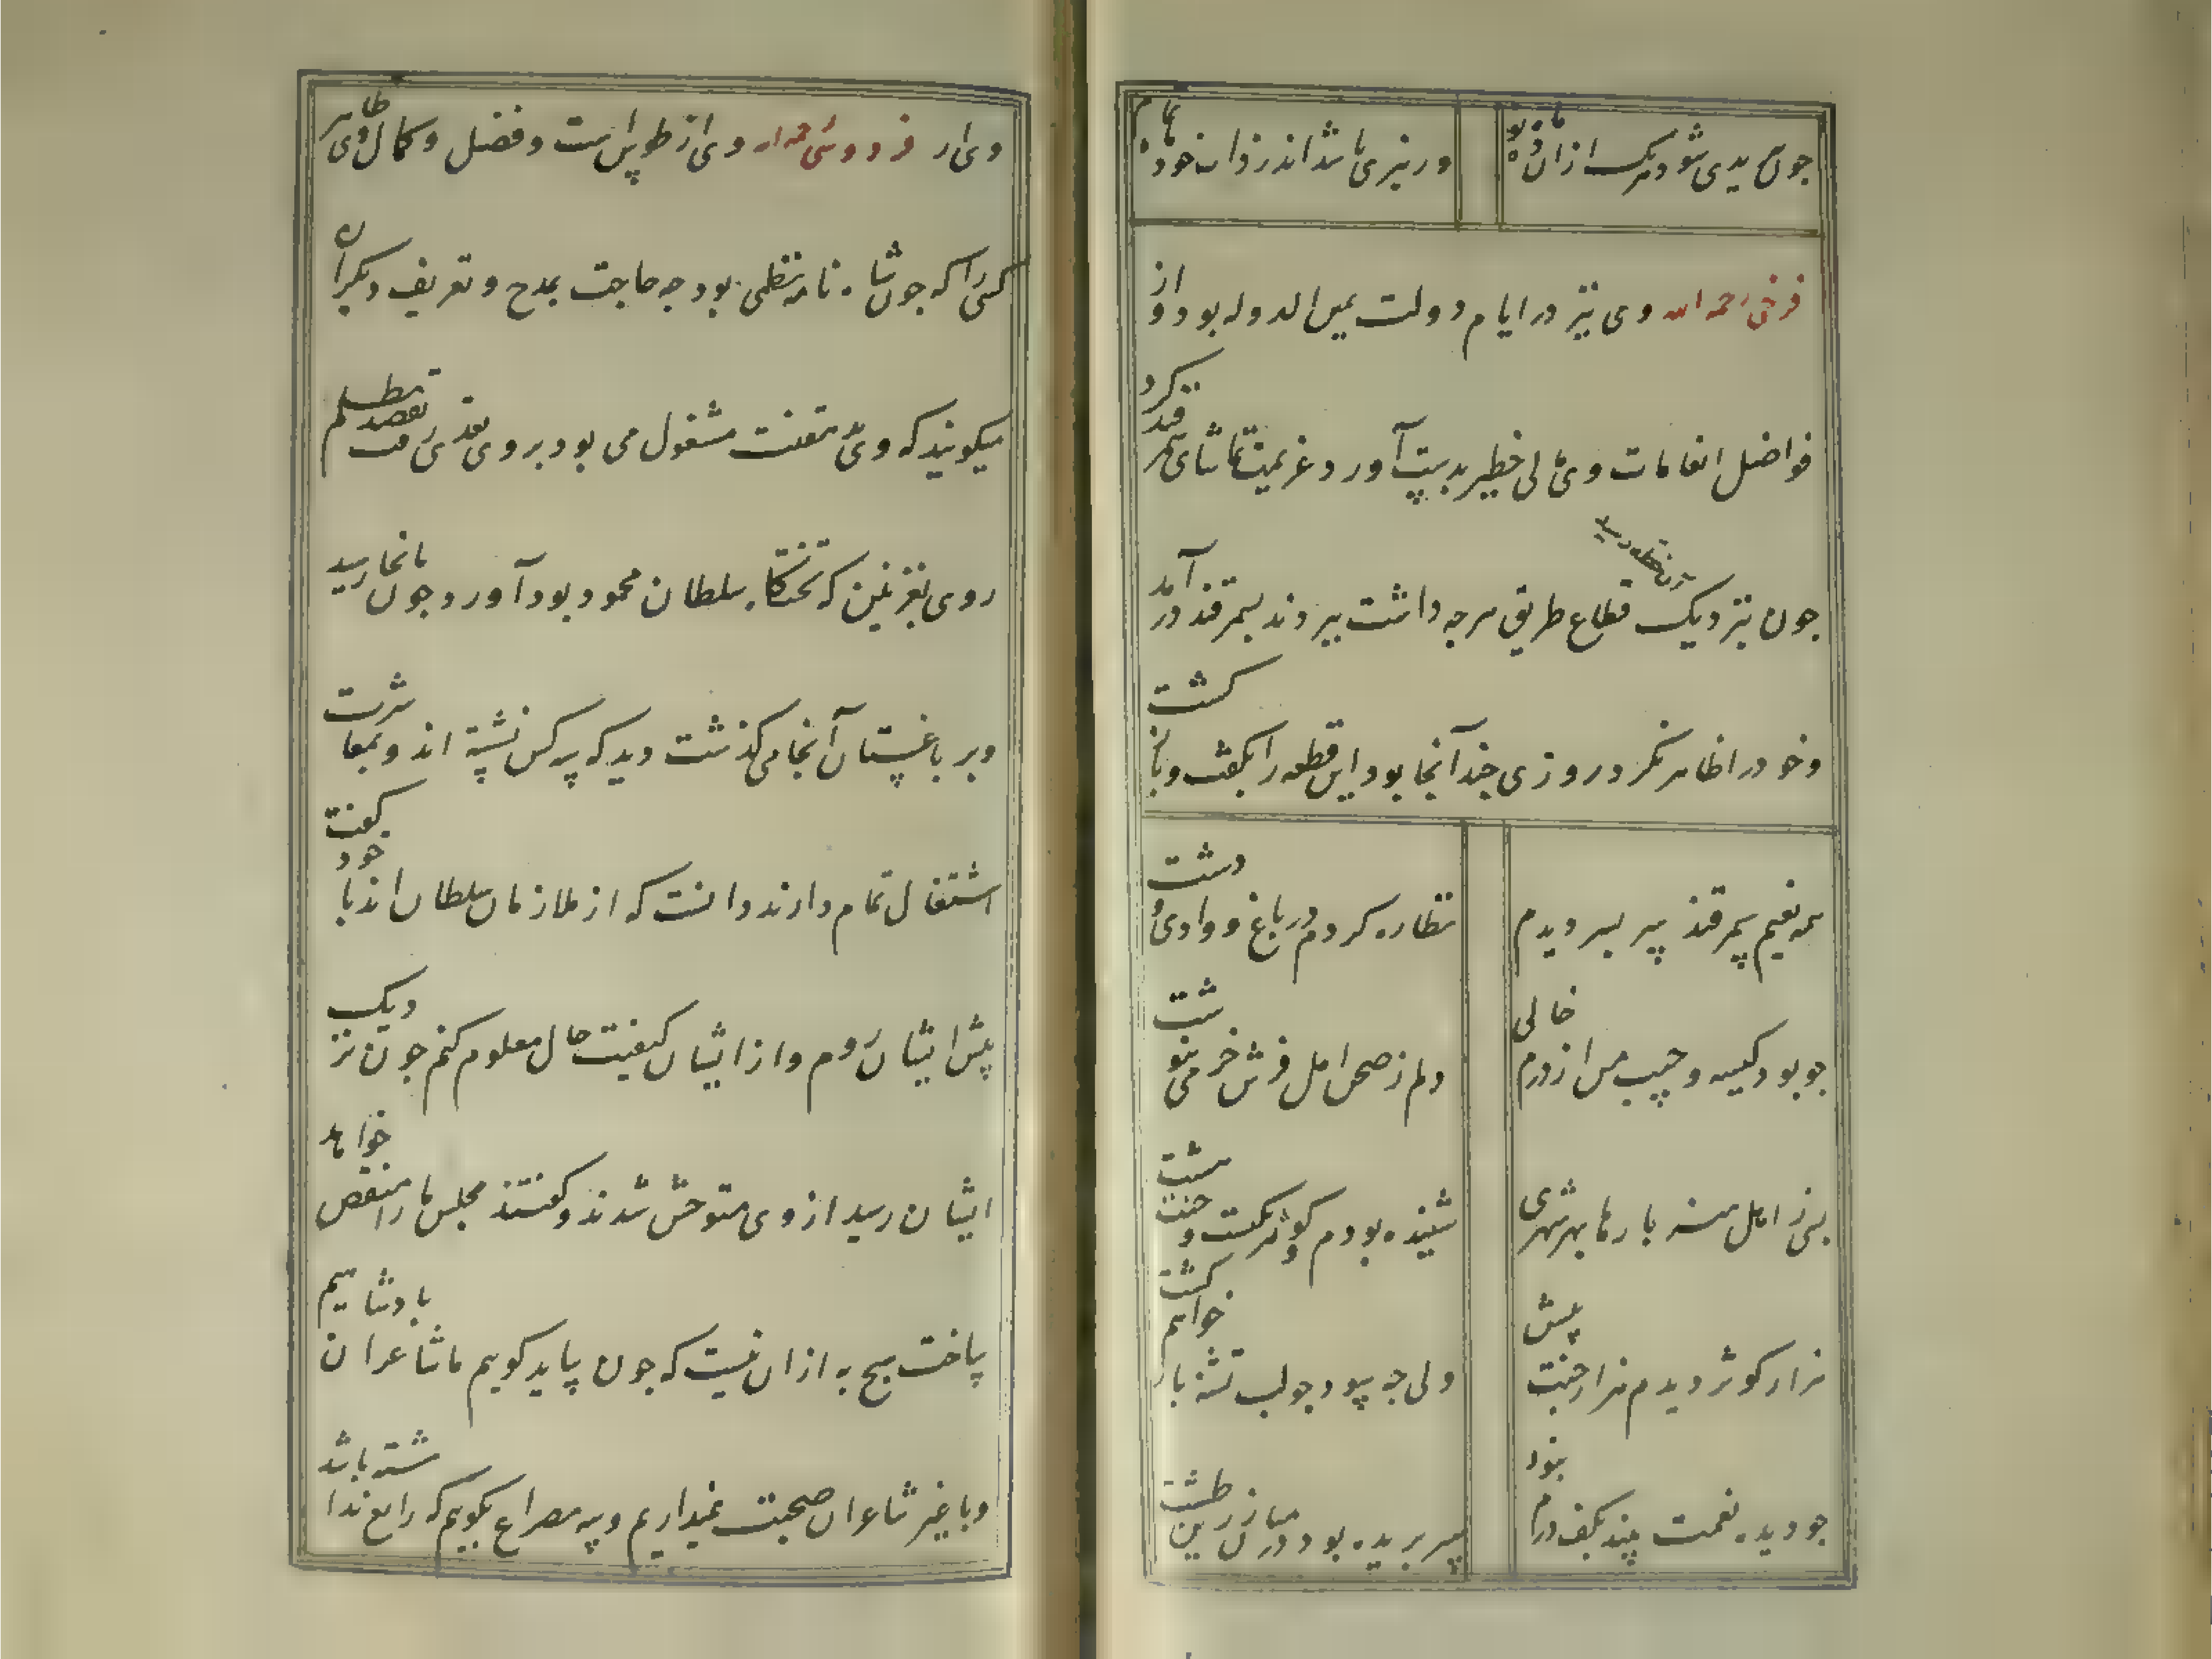 چون همی شود هریک ازان
فرخی رحمه الله وی نیز در ایام دولت یمین الدوله بود و از
فواضل انعامات وی مالی خطیر بدست آورد و عزیمت تماشای سمرقند کرد
جون نزدیک آن خطه رسید قطاع طریق هرجه داشت ببردند بسمرقند درآمد
و خود را ظاهر نکرد روزی جند آنجا بود این قطعه را بکفت و بازکشت
همه نعیم سمرقند سر بسر دیدم
نظاره کردم در باغ و وادی و دشت
جو بود کیسه و جیب من از درم خالی
دلم ز صحن امل فرش خرمی بنوشت
بسی ز اهل هنر بارها بهر شهری
شنیده بودم کوثر یکیست و جنت هشت
هزار کوثر دیدم هزار جنت بیش
ولی جه سود جو لب تشنه باز خواهم کشت
جو دیده نعمت بیند بکف درم نبود
سر بریده بود در میان زرین طشت
فردوسی رحمه الله وی از طوس است و فضل و کمال وی ظاهر
کسی را که جون شاه نامه نظمی بود جه حاجت بمدح و تعریف دیکران
میکویند که وی بدهقنت مشغول می بود بر وی تعدی رفت بقصد تظلم
روی بغزنین که تختکاه سلطان محمود بود آورد جون بانجا رسید
و بر باغستان آنجا می کذشت دید که سه کس نشسته اند و بمعاشرت
اشتغال تمام دارند دانست که از ملازمان سلطان اند با خود کفت
پیش ایشان روم و از ایشان کیفیت حال معلوم کنم جون نزدیک
ایشان رسید از وی متوحش شدند و کفتند مجلس ما را منغص خواهد
ساخت هیچ به ازان نیست که جون بیاید کویم ما شاعران بادشاهیم
و با غیر شاعران صحبت نمیداریم و سه مصراع بکویم که رابع نداشته باشد